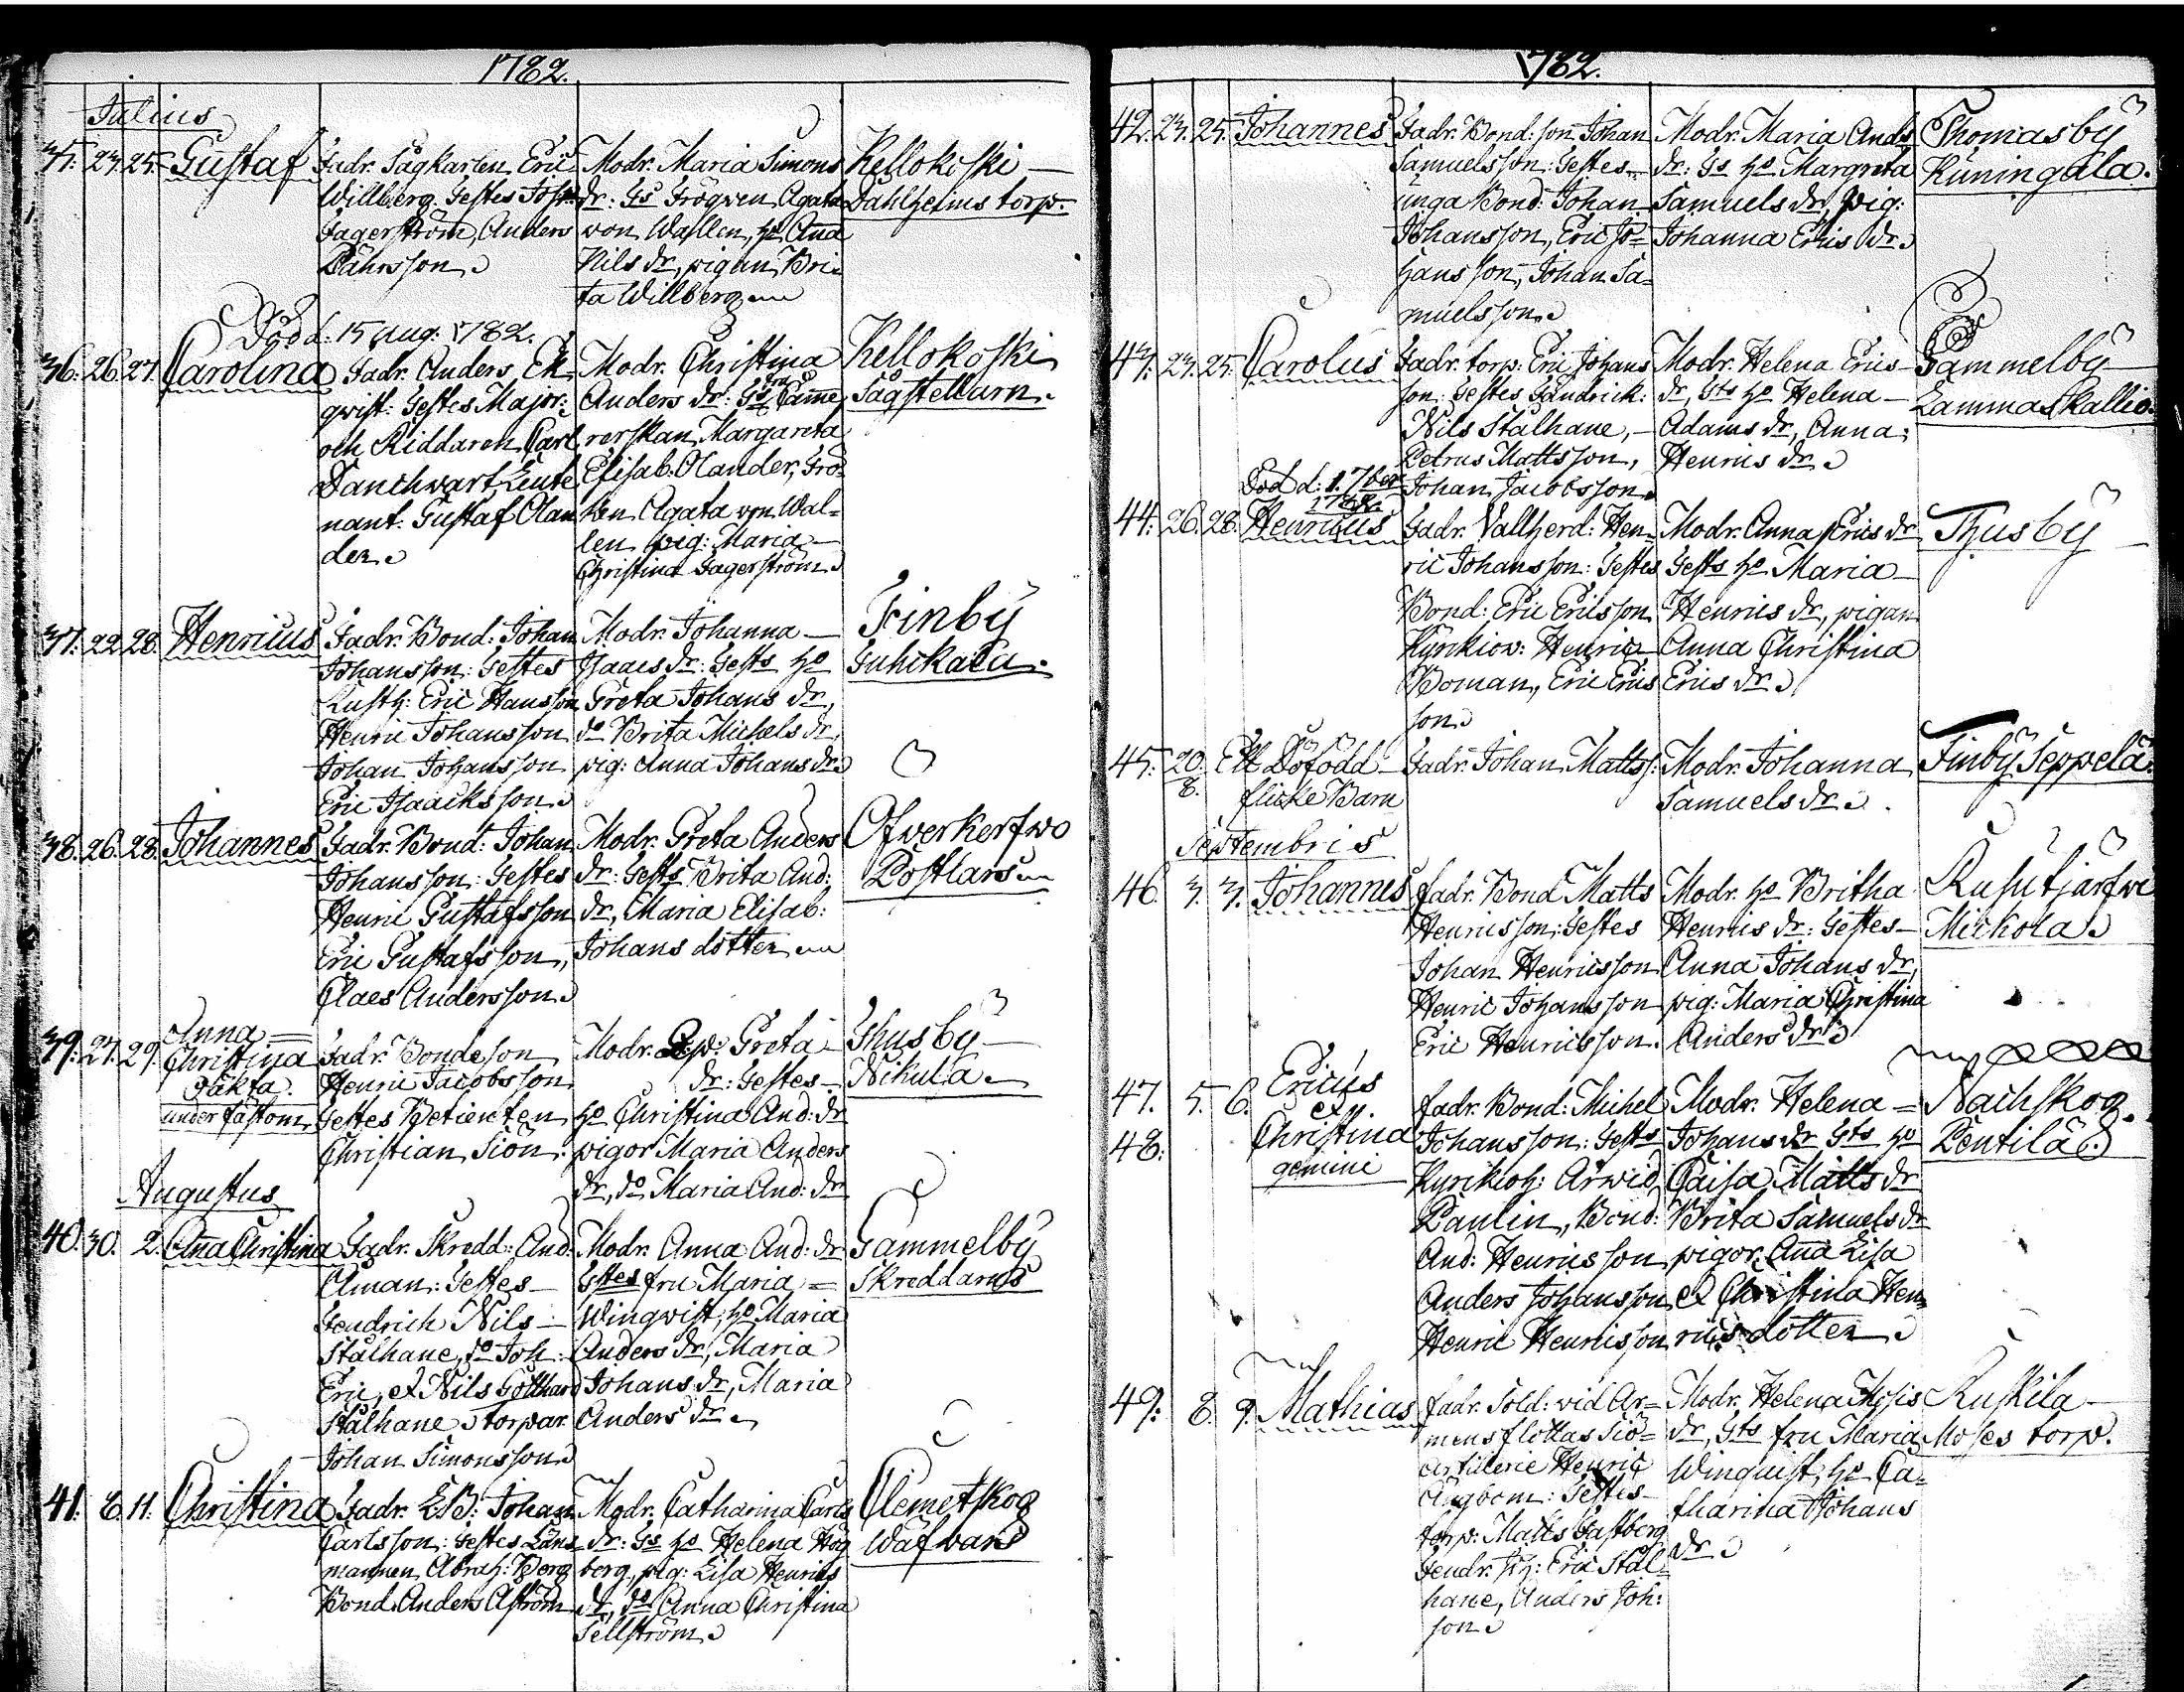 1782.
Julius
35. 23. 25. Gustaf
Fadr. Sågkarlen Eric
Willberg. Testes Joh:
Fagerström, Anders
Pährsson.
Modr. Maria Simons
dr: Ts Frögven Agata
von Wallen, ho Ana
Nils dr, pigan Bri-
ta Willberg
Kellokoski
Dahlheims torp.
Död d. 15 Aug: 1782.
36. 26. 27. Carolina
Fadr. Anders Ek-
qwist: Testes Major:
och Riddaren Carl
Danchwart, Leute
nant. Gustaf Olan
der.
Modr. Christina
Anders dr: Ts Came
rerskan Margareta
Elisab. Olander, Frö
ken Agata von Wal-
len pig: Maria
Christina Fagerström
Kellokoski
Sågställarn.
37. 22. 28. Henricus
Fadr. Bond: Johan
Johansson: Testes
Rusth: Eric Hansson
Henric Johansson
Johan Johansson
Eric Isaacksson
Modr. Johanna
Isaacs dr: Tests ho
Greta Johans dr,
do Brita Michels dr,
pig: Anna Johans dr
Finby
Juhckala.
38. 26. 28. Johannes
Fadr. Bond: Johan
Johansson: Testes
Henric Gustafsson
Eric Gustafsson,
Claes Andersson
Modr. Greta Anders
dr: Tests Brita And:
dr, Maria Elisab:
Johans dotter
Ofwerkerfwo
Postlars
39. 27. 29. Anna
Christina
oäkta.
under fästom
Fadr. Bondeson
Henric Jacobsson
Testes Betienten
Christian Siön.
Modr. Greta
dr: Testes
ho Christina And: dr
pigor Maria Anders
dr, do Maria And: dr
Thusby
Nikula
Augustus
40. 30. 2. Ana Christina
Fadr. Skredd: And:
Åman: Testes
Fendrich Nils
Stålhane, do Joh:
Eric, et Nils Gotthard
Stålhane torpar.
Johan Simonsson
Modr. Anna And: dr
Tstes fru Maria
Wingvist, ho Maria
Anders dr, Maria
Johans dr, Maria
Anders dr
Gammelby
Skreddarns
41. 8. 11. Christina
Fadr. LB: Johan
Carlsson: Testes Läns
mannen Abrah: Berg
Bond. Anders Åström
Modr. Catharina Carls
dr: Ts ho Helena Hög
berg, pig: Lisa Henrics
dr, do Anna Christina
Sellström
Clemetskog
Wäfwars
1782.
42. 23. 25. Johannes
Fadr. Bond: son Johan
Samuelsson: Testes
unga Bond: Johan
Johansson, Eric Jo-
hansson, Johan Sa-
muelsson
Modr. Maria Anders
dr: Ts ho Margreta
Samuels dr, pig:
Johanna Erics dr
Thomasby
Kuningala.
43. 23. 25. Carolus
Fadr. torp: Eric Johans
son: Testes Fändrick:
Nils Stålhane,
Petrus Mattsson,
Johan Jacobsson
Modr. Helena Erics
dr, Tts ho Helena
Adams dr, Anna
Henrics dr
Gammelby
Lammaskallio.
Död d: 1. 7ber
44. 26. 28. Henricus
Fadr. Vallherd: Hen-
ric Johansson: Testes
Bond: Eric Ericsson
Kyrkiov: Henric
Boman, Eric Erics
son
Modr. Anna Erics dr
Tests ho Maria
Henrics dr, pigan
Anna Christina
Erics dr
Thusby
45. 20. 8. Ett Döfödd
flicke Barn
Fadr. Johan Matts:
Modr. Johanna
Samuels dr.
Finby Seppelä.
Septembris
46. 3. 3. Johannes
Fadr. Bond Matts
Henricsson: Testes
Johan Henricsson
Henric Johansson
Eric Henricsson.
Modr. ho Britha
Henrics dr: Testes
Anna Johans dr,
pig: Maria Christina
Anders dr
Rusutjärfwi
Mickola.
47. 5. 6. Ericus
et
48. Christina
gemini
Fadr. Bond: Michel
Johansson: Tests
Kyrckioh: Arwid
Paulin, Bond:
And: Henricsson
Anders Johansson
Henric Henricsson
Modr. Helena
Johans dr Tts ho
Caisa Matts dr
Brita Samuels dr
pigor Ana Lisa
et Christina Hen
rics dotter
Nachskog.
Pentilä
49. 8. 9. Mathias
Fadr. Sold: vid Ar-
mens flottas Siö-
artillerie Henric
Ångbom: Testes
torp: Matts Gastberg
Fendr: Eric Stål-
hane, Anders Joh:
son
Modr. Helena Thosis
dr, Tts fru Maria
Winquist, ho Ca-
tharina Johans
dr
Ruskila
Moses torp.